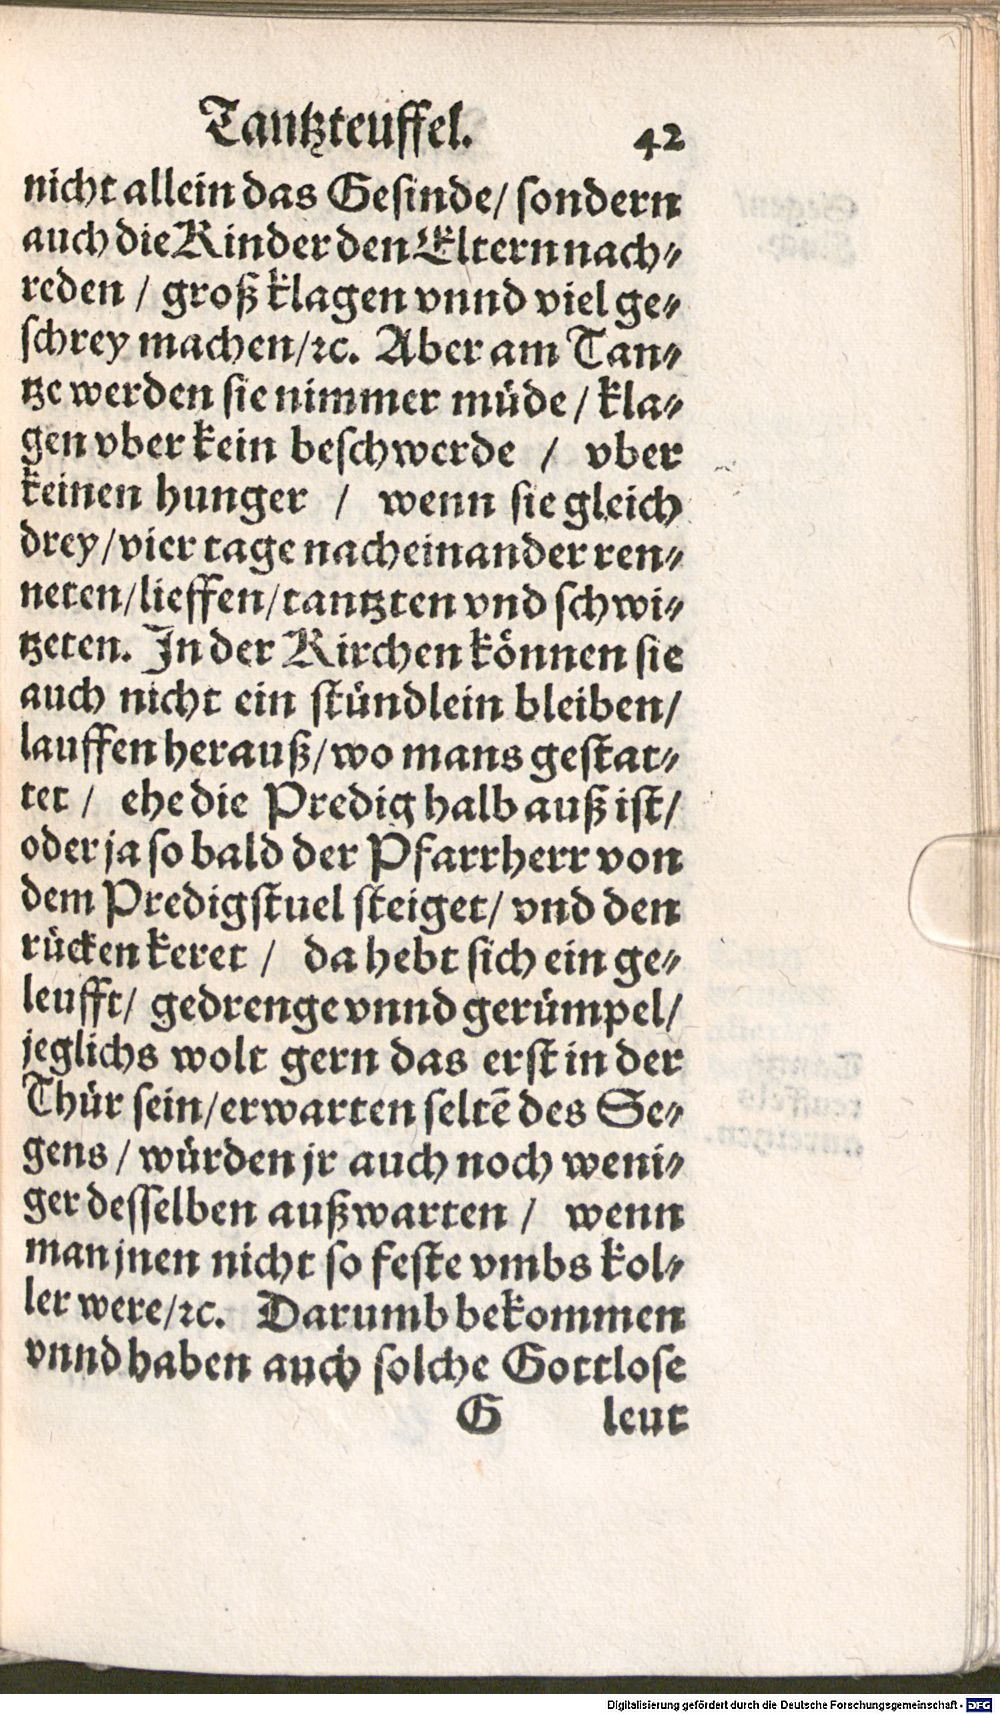 Tantzteuffel. 42
nicht allein das Gesinde/ sondern
auch die Kinder den Eltern nach⸗
reden / groß klagen vnnd viel ge⸗
schrey machen/ꝛc. Aber am Tan⸗
tze werden sie nimmer müde / kla⸗
gen vber kein beschwerde / vber
keinen hunger / wenn sie gleich
drey/vier tage nacheinander ren⸗
neten/lieffen/tantzten vnd schwi⸗
tzeten. In der Kirchen können sie
auch nicht ein stündlein bleiben/
lauffen herauß/wo mans gestat⸗
tet / ehe die Predig halb auß ist/
oder ja so bald der Pfarrherr von
dem Predigstuel steiget/ vnd den
rücken keret / da hebt sich ein ge⸗
leufft/ gedrenge vnnd gerümpel/
jeglichs wolt gern das erst in der
Thür sein/erwarten seltẽ des Se⸗
gens / würden jr auch noch weni⸗
ger desselben außwarten / wenn
man jnen nicht so feste vmbs kol⸗
ler were/ꝛc. Darumb bekommen
vnnd haben auch solche Gottlose
G leut
Digitalisierung gefördert durch die Deutsche Forschungsgemeinschaft - DFG